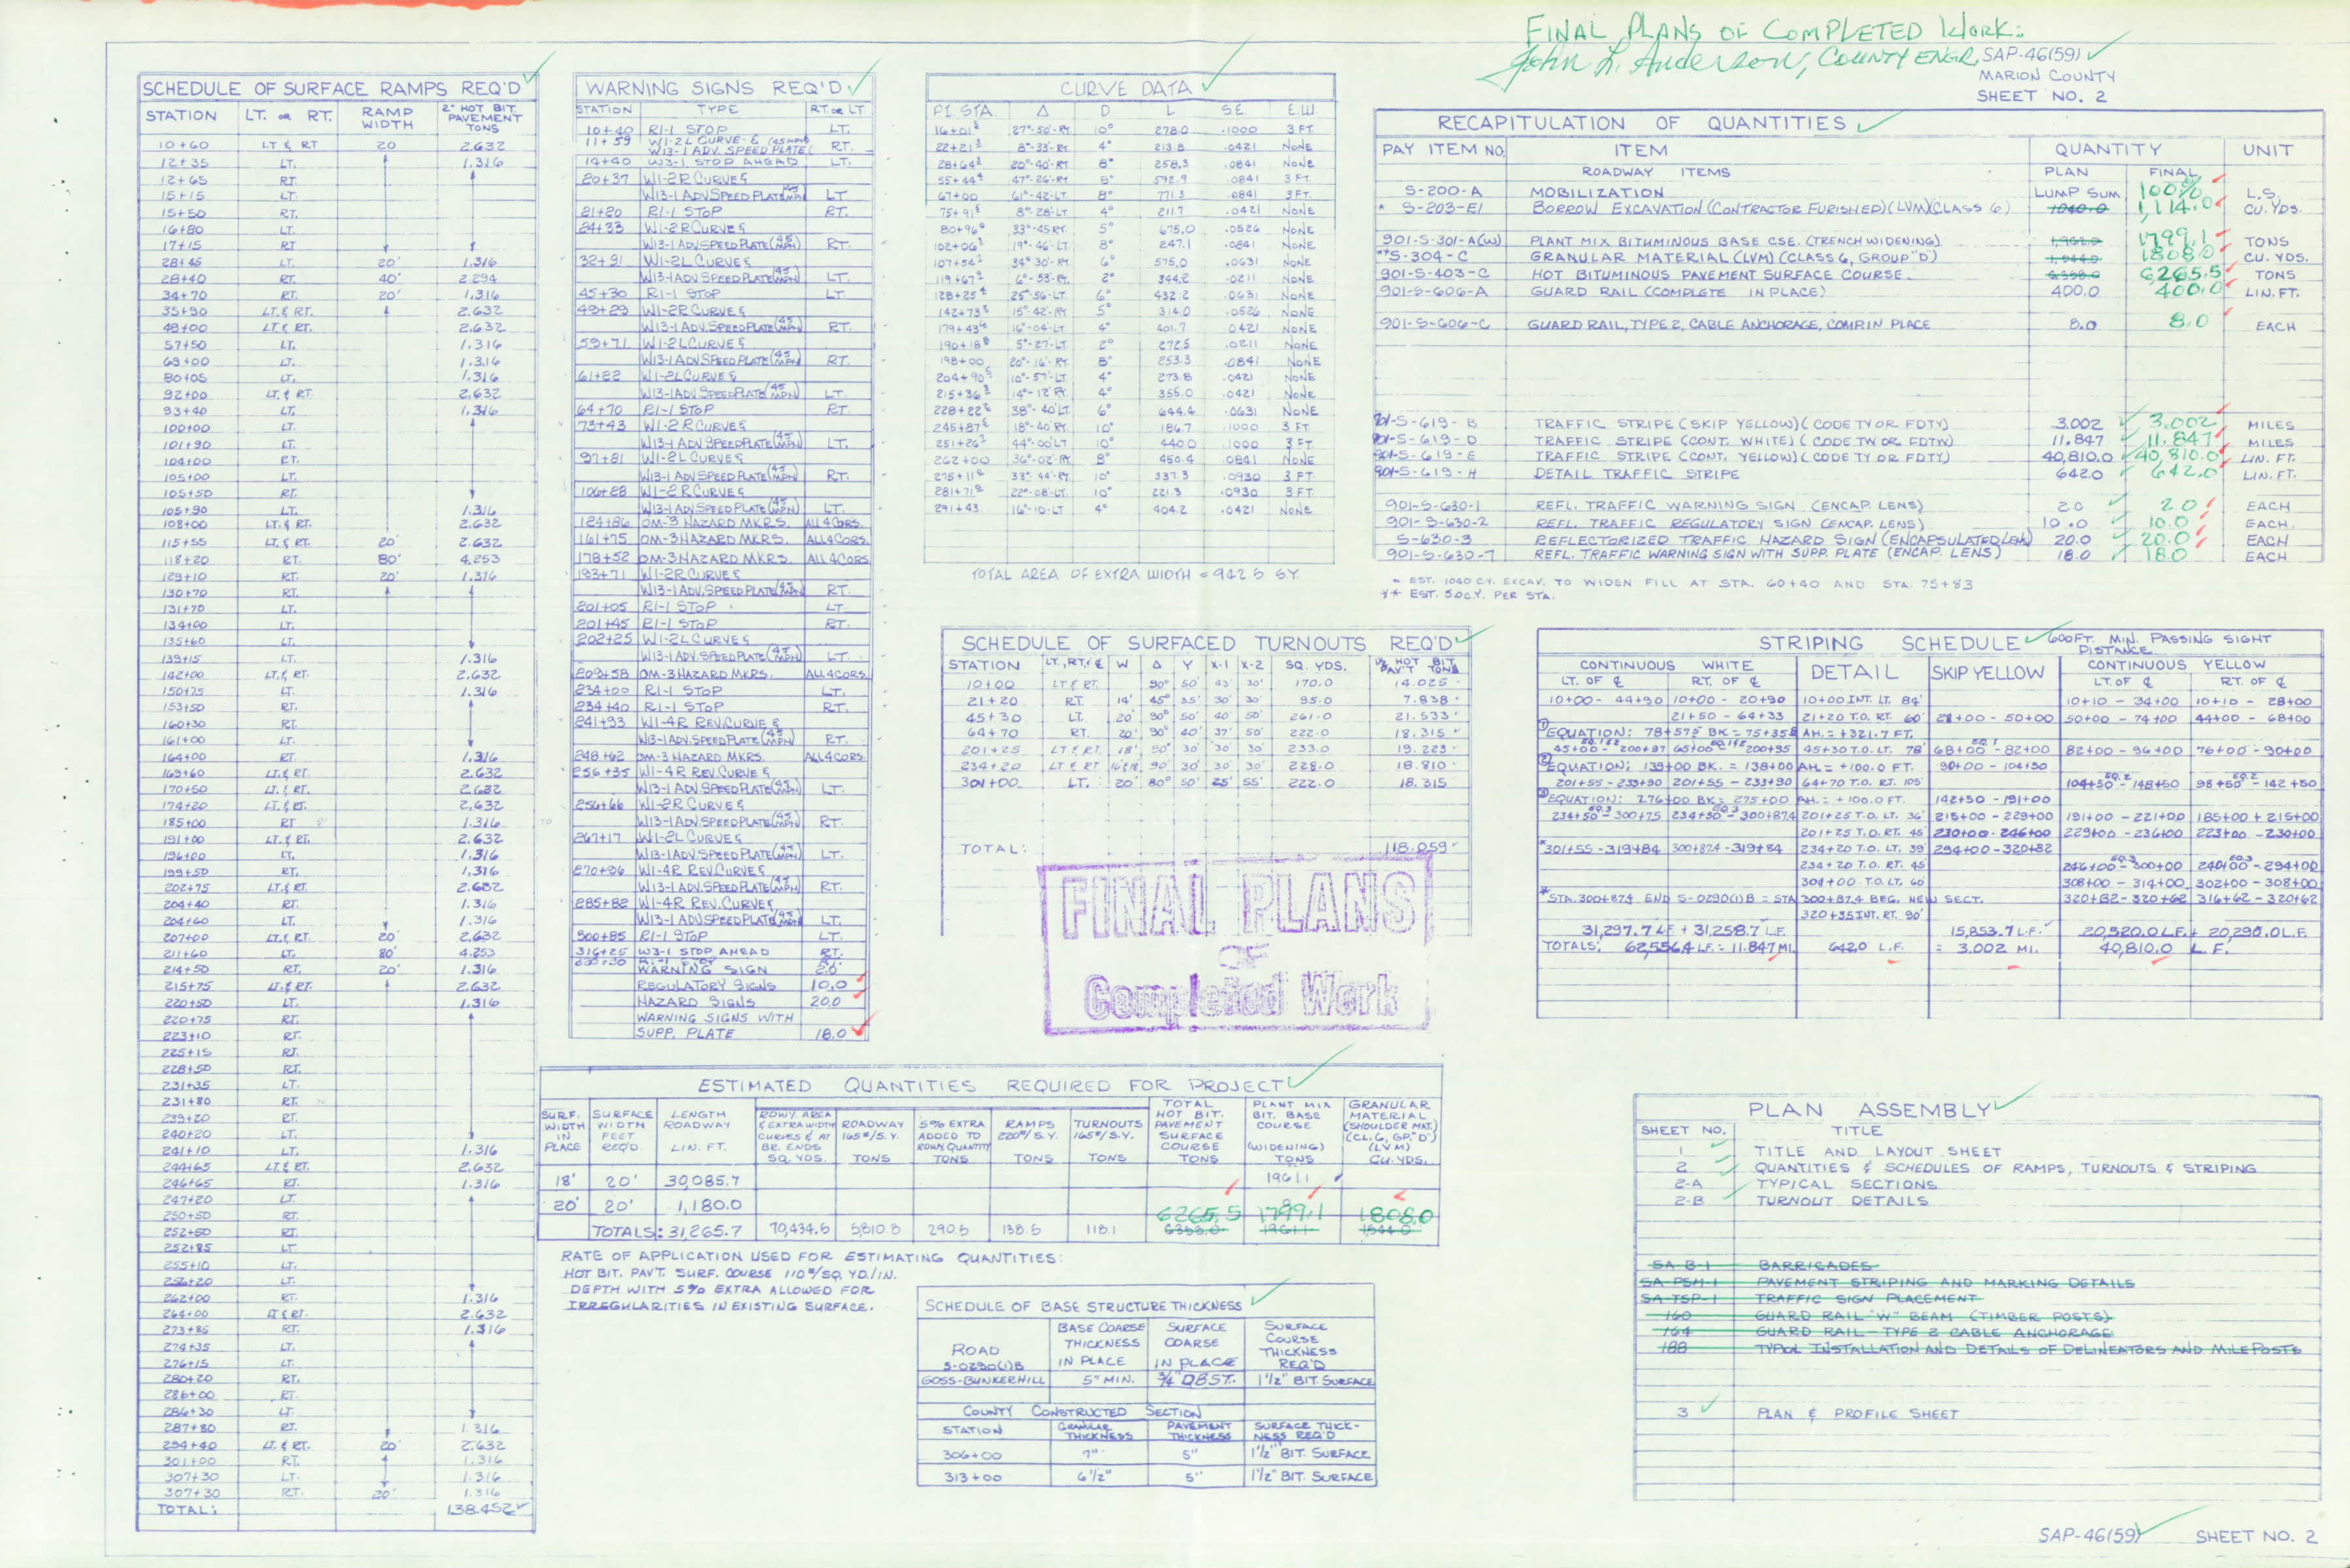 FINAL PLANS OF COMPLETED WORK:
John L. Anderson, COUNTY ENGR. SAP-46(59)
MARION COUNTY
SHEET NO. 2
SCHEDULE OF SURFACE RAMPS REQ'D
STATION LT. OR RT. RAMP WIDTH 2" HOT BIT. PAVEMENT TONS
10+60 LT & RT 20 2.632
12+35 LT. 1.316
12+65 RT.
15+15 LT.
15+50 RT.
16+80 LT.
17+15 RT
28+45 LT. 20' 1.316
28+40 RT. 40' 2.294
34+70 RT. 20' 1.316
35+90 LT. & RT. 2.632
48+00 LT. & RT. 2.632
57+50 LT. 1.316
69+00 LT. 1.316
80+05 LT. 1.316
92+00 LT. & RT. 2.632
93+40 LT. 1.316
100+00 LT.
101+90 LT.
104+00 RT.
105+00 LT.
105+50 RT.
105+90 LT. 1.316
108+00 LT. & RT. 2.632
115+55 LT. & RT. 20' 2.632
118+20 RT. 80' 4.253
129+10 RT. 20' 1.316
130+70 RT.
131+70 LT.
134+00 LT.
135+60 LT.
139+15 LT. 1.316
142+00 LT. & RT. 2.632
150+75 LT. 1.316
153+50 RT.
160+30 RT.
161+00 LT.
164+00 RT. 1.316
169+60 LT. & RT. 2.632
170+50 LT. & RT. 2.632
174+20 LT. & RT. 2.632
185+00 RT 1.316
191+00 LT. & RT. 2.632
196+00 LT. 1.316
199+50 RT. 1.316
202+75 LT. & RT. 2.632
204+40 RT. 1.316
204+60 LT. 1.316
207+00 LT. & RT. 20' 2.632
211+60 LT. 80' 4.253
214+50 RT. 20' 1.316
215+75 LT. & RT. 2.632
220+50 LT. 1.316
220+75 RT.
223+10 RT.
225+15 RT.
228+50 RT.
231+35 LT.
231+80 RT.
239+20 RT.
240+20 LT.
241+10 LT. 1.316
244+65 LT. & RT. 2.632
246+65 RT. 1.316
247+20 LT.
250+50 RT.
252+50 RT.
252+85 LT
255+10 LT.
256+20 LT.
262+00 RT. 1.316
264+00 LT & RT. 2.632
273+85 RT. 1.316
274+35 LT.
276+15 LT.
280+20 RT.
286+00 RT.
286+30 LT.
287+80 RT. 1.316
294+40 LT. & RT. 20' 2.632
301+00 RT. 1.316
307+30 LT. 1.316
307+30 RT. 20' 1.316
TOTAL: 138.452
WARNING SIGNS REQ'D
STATION TYPE RT OR LT.
10+40 R1-1 STOP LT.
11+59 W1-2L CURVE & (45 MPH)
W13-1 ADV. SPEED PLATE RT.
14+40 W3-1 STOP AHEAD LT.
20+37 W1-2R CURVE &
W13-1 ADV SPEED PLATE (45 MPH) LT
21+20 R1-1 STOP RT.
24+33 W1-2R CURVE &
W13-1 ADV SPEED PLATE (45 MPH) RT.
32+91 W1-2L CURVE &
W13-1 ADV SPEED PLATE (45 MPH) LT.
45+30 R1-1 STOP LT
49+29 W1-2R CURVE &
W13-1 ADV. SPEED PLATE (45 MPH) RT.
59+71 W1-2L CURVE &
W13-1 ADV SPEED PLATE (45 MPH) RT.
61+82 W1-2L CURVE &
W13-1 ADV SPEED PLATE (45 MPH) LT.
64+70 R1-1 STOP RT
73+43 W1-2R CURVE &
W13-1 ADV SPEED PLATE (45 MPH) LT.
97+81 W1-2L CURVE &
W13-1 ADV SPEED PLATE (45 MPH) RT.
106+88 W1-2R CURVE &
W13-1 ADV SPEED PLATE (45 MPH) LT.
124+86 OM-3 HAZARD MKRS. ALL 4 CORS.
161+75 OM-3 HAZARD MKRS. ALL 4 CORS.
178+52 OM-3 HAZARD MKRS. ALL 4 CORS
193+71 W1-2R CURVE &
W13-1 ADV. SPEED PLATE (45 MPH) RT.
201+05 R1-1 STOP LT
201+45 R1-1 STOP RT.
202+25 W1-2L CURVE &
W13-1 ADV. SPEED PLATE (45 MPH) LT.
209+58 OM-3 HAZARD MKRS. ALL 4 CORS
234+00 R1-1 STOP LT.
234+40 R1-1 STOP RT.
241+93 W1-4R REV. CURVE &
W13-1 ADV. SPEED PLATE (45 MPH) RT.
248+62 OM-3 HAZARD MKRS. ALL 4 CORS
256+35 W1-4R REV. CURVE &
W13-1 ADV. SPEED PLATE (45 MPH) LT.
256+66 W1-2R CURVE &
W13-1 ADV. SPEED PLATE (45 MPH) RT.
267+17 W1-2L CURVE &
W13-1 ADV. SPEED PLATE (45 MPH) LT.
270+06 W1-4R REV. CURVE &
W13-1 ADV. SPEED PLATE (45 MPH) RT.
285+82 W1-4R REV. CURVE &
W13-1 ADV SPEED PLATE (45 MPH) LT.
300+85 R1-1 STOP LT.
316+25 W3-1 STOP AHEAD RT.
WARNING SIGN 2.0
REGULATORY SIGNS 10.0
HAZARD SIGNS 20.0
WARNING SIGNS WITH
SUPP. PLATE 18.0
CURVE DATA
P.I. STA. Δ D L S.E. E.W.
16+01 27°-50'-RT 10° 278.0 .1000 3 FT.
22+21 8°-33'-RT. 4° 213.8 .0421 NONE
28+64 20°-40'-RT 8° 258.3 .0841 NONE
55+44 47°-26'-RT 8° 592.9 .0841 3 FT.
67+00 61°-42'-LT 8° 771.3 .0841 3 FT.
75+91 8°-28'-LT 4° 211.7 .0421 NONE
80+96 33°-45'RT. 5° 675.0 .0526 NONE
102+06 19°-46'-LT. 8° 247.1 .0841 NONE
107+54 34° 30'-RT. 6° 575.0 .0631 NONE
119+67 6°-53'-RT. 2° 344.2 .0211 NONE
128+25 25°-56'-LT. 6° 432.2 .0631 NONE
142+73 15°-42'-RT 5° 314.0 .0526 NONE
179+43 16°-04'-LT 4° 401.7 .0421 NONE
190+18 5°-27'-LT 2° 272.5 .0211 NONE
198+00 20°-16'-RT. 8° 253.3 .0841 NONE
204+90 10°-57'-LT 4° 273.8 .0421 NONE
215+36 14°-12'RT. 4° 355.0 .0421 NONE
228+22 38°-40'LT 6° 644.4 .0631 NONE
245+87 18°-40'RT. 10° 186.7 .1000 3 FT
251+26 44°-00'LT 10° 440.0 .1000 3 FT.
262+00 36°-02'-RT 8° 450.4 .0841 NONE
275+11 33°-44'-RT. 10° 337.3 .0930 3 FT.
281+71 22°-08'-LT. 10° 221.3 .0930 3 FT.
291+43 16°-10'-LT 4° 404.2 .0421 NONE
TOTAL AREA OF EXTRA WIDTH = 942.5 S.Y.
SCHEDULE OF SURFACED TURNOUTS REQ'D
STATION LT., RT. & ₵ W Δ Y X-1 X-2 SQ. YDS. 1½" HOT BIT. PAV'T TONS
10+00 LT & RT. 90° 50' 43' 30' 170.0 14.025
21+20 RT. 14' 45° 35' 30' 30' 95.0 7.838
45+30 LT. 20' 90° 50' 40' 50' 261.0 21.533
64+70 RT. 20' 90° 40' 37' 50' 222.0 18.315
201+25 LT & RT. 18' 90° 30' 30' 30' 233.0 19.223
234+20 LT & RT 16'&18' 90° 30' 30' 30' 228.0 18.810
301+00 LT. 20' 80° 50' 25' 55' 222.0 18.315
TOTAL: 118.059
FINAL PLANS
OF
Completed Work
RECAPITULATION OF QUANTITIES
PAY ITEM NO. ITEM QUANTITY UNIT
ROADWAY ITEMS PLAN FINAL
S-200-A MOBILIZATION LUMP SUM 100% L.S.
* S-203-E1 BORROW EXCAVATION (CONTRACTOR FURISHED) (LVM) (CLASS 6) 1040.0 1,114.0 CU. YDS.
901-S-301-A(W) PLANT MIX BITUMINOUS BASE CSE. (TRENCH WIDENING) 1799.1 TONS
**S-304-C GRANULAR MATERIAL (LVM) (CLASS 6, GROUP "D") 1808.0 CU. YDS.
901-S-403-C HOT BITUMINOUS PAVEMENT SURFACE COURSE. 6265.5 TONS
901-S-606-A GUARD RAIL (COMPLETE IN PLACE) 400.0 400.0 LIN. FT.
901-S-606-C GUARD RAIL, TYPE 2, CABLE ANCHORAGE, COMP. IN PLACE 8.0 8.0 EACH
901-S-619-B TRAFFIC STRIPE (SKIP YELLOW) (CODE TY OR FDTY) 3.002 3.002 MILES
901-S-619-D TRAFFIC STRIPE (CONT. WHITE) (CODE TW OR FDTW) 11.847 11.847 MILES
901-S-619-E TRAFFIC STRIPE (CONT. YELLOW) (CODE TY OR FDTY) 40,810.0 40,810.0 LIN. FT.
901-S-619-H DETAIL TRAFFIC STRIPE 642.0 642.0 LIN. FT.
901-S-630-1 REFL. TRAFFIC WARNING SIGN (ENCAP. LENS) 2.0 2.0 EACH
901-S-630-2 REFL. TRAFFIC REGULATORY SIGN (ENCAP. LENS) 10.0 10.0 EACH.
S-630-3 REFLECTORIZED TRAFFIC HAZARD SIGN (ENCAPSULATED LENS) 20.0 20.0 EACH
901-S-630-7 REFL. TRAFFIC WARNING SIGN WITH SUPP. PLATE (ENCAP. LENS) 18.0 18.0 EACH
* EST. 1040 CY. EXCAV. TO WIDEN FILL AT STA. 60+40 AND STA. 75+83
** EST. 50 C.Y. PER STA.
STRIPING SCHEDULE 600 FT. MIN. PASSING SIGHT DISTANCE
CONTINUOUS WHITE DETAIL SKIP YELLOW CONTINUOUS YELLOW
LT. OF ₵ RT. OF ₵ LT. OF ₵ RT. OF ₵
10+00 - 44+90 10+00 - 20+90 10+00 INT. LT. 84' 10+10 - 34+00 10+10 - 28+00
21+50 - 64+33 21+20 T.O. RT. 60' 28+00 - 50+00 50+00 - 74+00 44+00 - 68+00
① EQUATION: 78+57.1 BK = 75+35.8 AH. = +321.7 FT.
45+00 - 200+97 65+00 - 200+95 45+30 T.O. LT. 78' 68+00 - 82+00 82+00 - 96+00 76+00 - 90+00
② EQUATION: 139+00 BK. = 138+00 AH. = +100.0 FT. 90+00 - 104+50
201+55 - 233+90 201+55 - 233+90 64+70 T.O. RT. 105' 104+50 - 148+50 98+50 - 142+50
③ EQUATION: 276+00 BK = 275+00 AH. = +100.0 FT. 142+50 - 191+00
234+50 - 300+75 234+50 - 300+87.4 201+25 T.O. LT. 36' 215+00 - 229+00 191+00 - 221+00 185+00 + 215+00
201+25 T.O. RT. 45' 230+00 - 246+00 229+00 - 236+00 223+00 - 230+00
*301+55 - 319+84 300+87.4 - 319+84 234+20 T.O. LT. 39' 294+00 - 320+82
234+20 T.O. RT. 45' 246+00 - 300+00 240+00 - 294+00
301+00 T.O. LT. 60' 308+00 - 314+00 302+00 - 308+00
*STA. 300+87.4 END S-0290(1)B = STA 300+87.4 BEG. NEW SECT. 320+82 - 320+62 316+62 - 320+62
320+35 INT. RT. 90'
31,297.7 LF + 31,258.7 L.F. 15,853.7 L.F. 20,520.0 L.F. + 20,290.0 L.F.
TOTALS: 62,556.4 LF. = 11.847 MI. 642.0 L.F. = 3.002 MI. 40,810.0 L.F.
ESTIMATED QUANTITIES REQUIRED FOR PROJECT
SURF. WIDTH IN PLACE SURFACE WIDTH FEET REQ'D. LENGTH ROADWAY LIN. FT. RDWY. AREA & EXTRA WIDTH CURVES & AT BR. ENDS SQ. YDS. ROADWAY 165#/S.Y. TONS 5% EXTRA ADDED TO RDWY. QUANTITY TONS RAMPS 220#/S.Y. TONS TURNOUTS 165#/S.Y. TONS TOTAL HOT BIT. PAVEMENT SURFACE COURSE TONS PLANT MIX BIT. BASE COURSE (WIDENING) TONS GRANULAR MATERIAL (SHOULDER MAT.) (CL. 6, GP. "D") (LVM) CU. YDS.
18' 20' 30,085.7 1961.1
20' 20' 1,180.0
6265.5 1799.1 1808.0
TOTALS: 31,265.7 70,434.6 5,810.8 290.5 138.5 118.1 6358.0 1961.1 1544.0
RATE OF APPLICATION USED FOR ESTIMATING QUANTITIES:
HOT BIT. PAVT. SURF. COURSE 110#/SQ. YD./IN.
DEPTH WITH 5% EXTRA ALLOWED FOR
IRREGULARITIES IN EXISTING SURFACE.
SCHEDULE OF BASE STRUCTURE THICKNESS
ROAD BASE COARSE THICKNESS IN PLACE SURFACE COARSE IN PLACE SURFACE COURSE THICKNESS REQ'D
S-0290(1)B
GOSS-BUNKERHILL 5" MIN. ¾" DBST. 1½" BIT. SURFACE
COUNTY CONSTRUCTED SECTION
STATION GRANULAR THICKNESS PAVEMENT THICKNESS SURFACE THICKNESS REQ'D
306+00 7" 5" 1½" BIT. SURFACE
313+00 6½" 5" 1½" BIT. SURFACE
PLAN ASSEMBLY
SHEET NO. TITLE
1 TITLE AND LAYOUT SHEET
2 QUANTITIES & SCHEDULES OF RAMPS, TURNOUTS & STRIPING
2-A TYPICAL SECTIONS
2-B TURNOUT DETAILS
SA-B-1 BARRICADES
SA-PSM-1 PAVEMENT STRIPING AND MARKING DETAILS
SA-TSP-1 TRAFFIC SIGN PLACEMENT
160 GUARD RAIL "W" BEAM (TIMBER POSTS)
164 GUARD RAIL - TYPE 2 CABLE ANCHORAGE
188 TYPCL INSTALLATION AND DETAILS OF DELINEATORS AND MILEPOSTS
3 PLAN & PROFILE SHEET
SAP-46(59) SHEET NO. 2